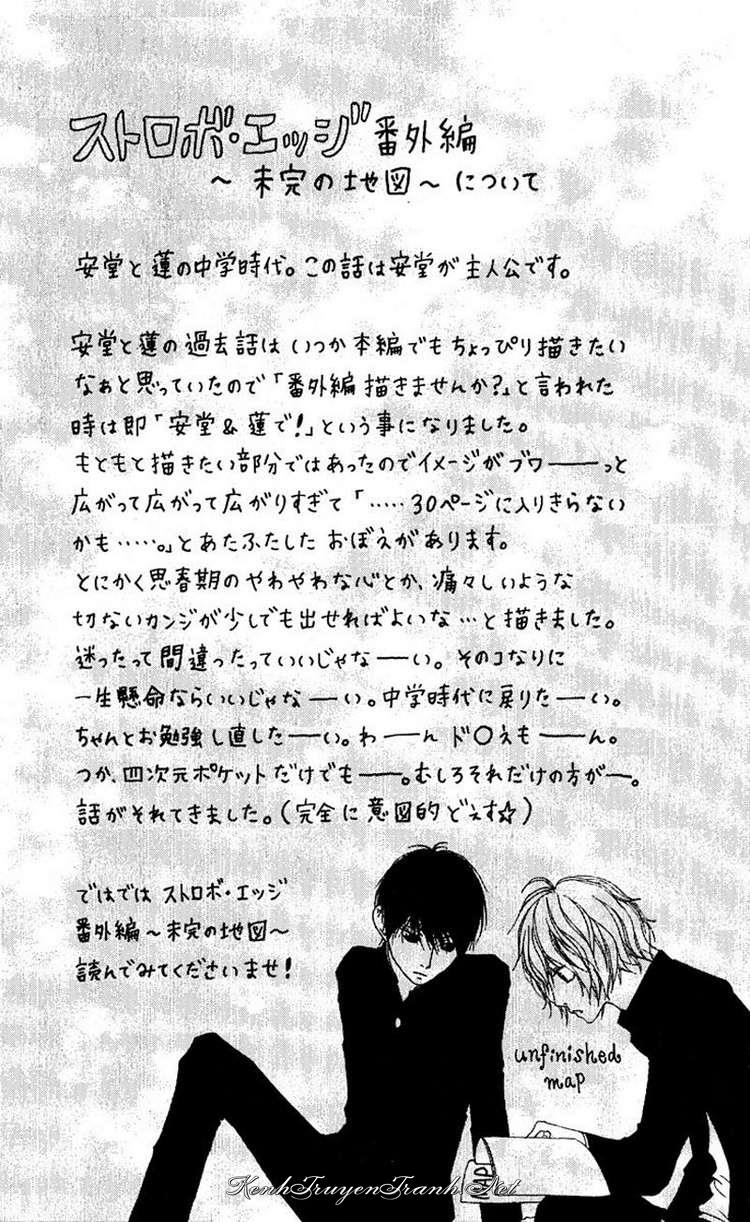 ストロボ・エッジ 番外編
～ 未完の地図～ について
安堂と蓮の中学時代。この話は安堂が主人公です。
安堂と蓮の過去話は いつか本編でもちょっぴり描きたい
なぁと思っていたので「番外編描きませんか?」と言われた
時は即「安堂&蓮で!」という事になりました。
もともと描きたい部分ではあったのでイメージがブワーーっと
広がって広がって広がりすぎて「‥‥‥30ページに入りきらない
かも‥‥‥。」とあたふたした おぼえがあります。
とにかく思春期のやわやわな心とか、痛々しいような
切ないカンジが少しでも出せればよいな…と描きました。
迷ったって間違ったっていいじゃなーい。そのコなりに
一生懸命ならいいじゃなーい。中学時代に戻りたーい。
ちゃんとお勉強し直したーい。わーん ド〇えもーん。
つか、四次元ポケットだけでもー。むしろそれだけの方がー。
話がそれてきました。(完全に意図的どえす☆)
ではでは ストロボ・エッジ
番外編～未完の地図～
読んでみてくださいませ!
unfinished
map
MAP
KenhTruyenTranh.Net